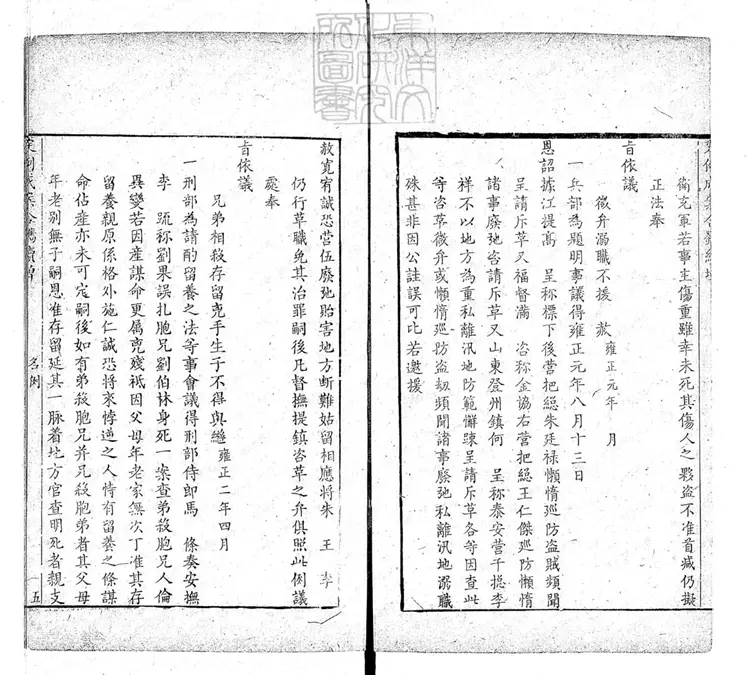 衛充軍若事主傷重雖幸未死其傷人之夥盜不准首减仍擬
正法奉
旨依議
微弁溺職不援 赦雍正元年 月
一兵部為題明事議得雍正元年八月十三日
恩詔據江提高 呈稱標下後營把總朱廷祿懶惰廵防盜賊頻聞
呈請斥革又福督滿 咨稱金協右營把總王仁傑廵防懶惰
諸事廢弛咨請斥革又山東登州鎮何 呈稱泰安營千總李
祥不以地方為重私離汛地防範懈踈呈請斥革各等因查此
等咨革微弁或懶惰廵防盜刼頻聞諸事廢弛私離汛地溺職
殊甚非因公詿誤可比若邀援
赦寛宥誠恐營伍廢弛貽害地方斷難姑留相應將朱 王 李
仍行革職免其治罪嗣後凡督撫提鎮咨革之弁俱照此例議
處奉
旨依議
兄弟相殺存留兇手生子不得與繼雍正二年四月
一刑部為請酌留養之法等事會議得刑部侍郎馬 條奏安撫
李 疏稱劉果誤扎胞兄劉伯林身死一案查弟殺胞兄人倫
異變若因産謀命更属兇殘祇因父母年老家無次丁准其存
留養親原係格外施仁誠恐將來悖逆之人恃有留養之條謀
命佔産亦未可定嗣後如有弟殺胞兄并兄殺胞弟者其父母
年老别無子嗣恩准存留延其一脉着地方官查明死者親支
名例
十五